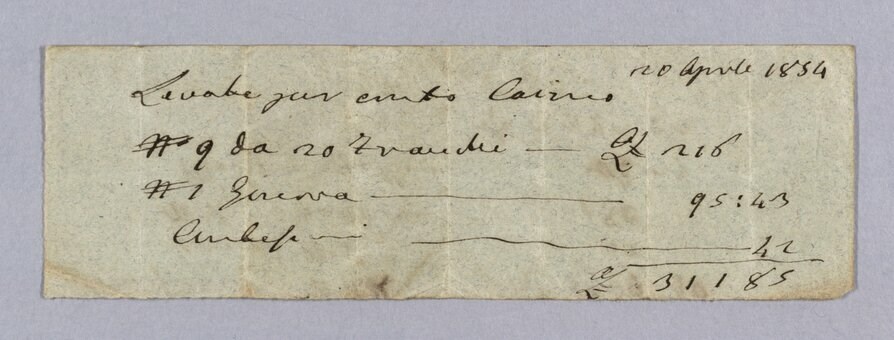 20 Aprile 1834
Levate per conto
N° 9 da 20 Franchi — £ 216
N° 1 Genova — 95:43
— 42
£ 311 85